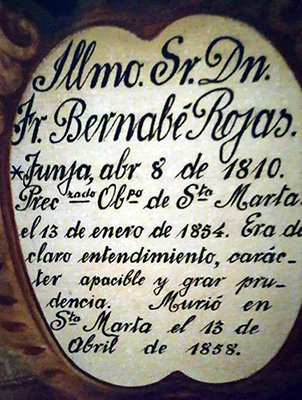 Illmo. Sr. Dn.
Fr. Bernabé Rojas.
*Tunja, abr 8 de 1810.
Preczado Obpo de Sta Marta
el 13 de enero de 1854. Era de
claro entendimiento, carác-
ter apacible y gran pru-
dencia. Murió en
Sta Marta el 13 de
Abril de 1858.